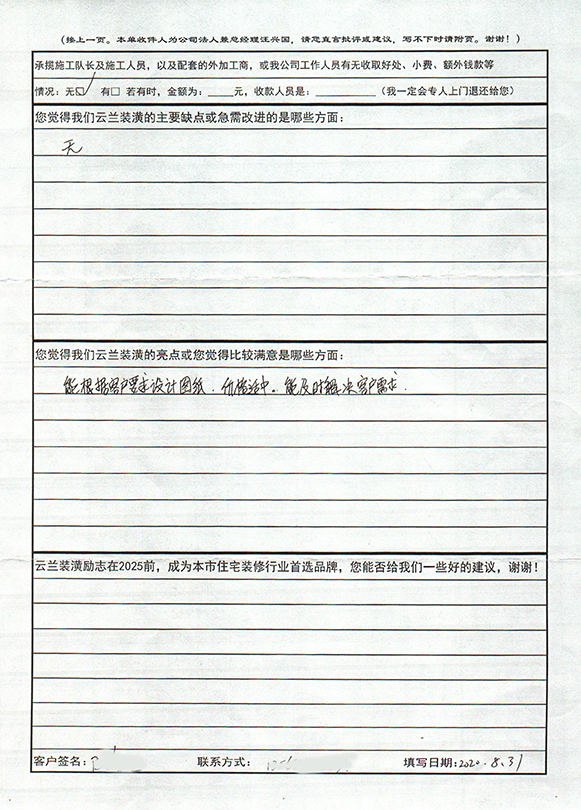 (接上一页。本单收件人为公司法人兼总经理汪兴国，请您直言批评或建议，写不下时请附页。谢谢！)
承揽施工队长及施工人员，以及配套的外加工商，或我公司工作人员有无收取好处、小费、额外钱款等
情况：无☑ 有□ 若有时，金额为：____元，收款人员是：__________（我一定会专人上门退还给您）
您觉得我们云兰装潢的主要缺点或急需改进的是哪些方面：
无
您觉得我们云兰装潢的亮点或您觉得比较满意是哪些方面：
能根据客户要求设计图纸．价格适中。能及时解决客户需求．
云兰装潢励志在2025前，成为本市住宅装修行业首选品牌，您能否给我们一些好的建议，谢谢！
客户签名： 联系方式： 填写日期：2020．8．31